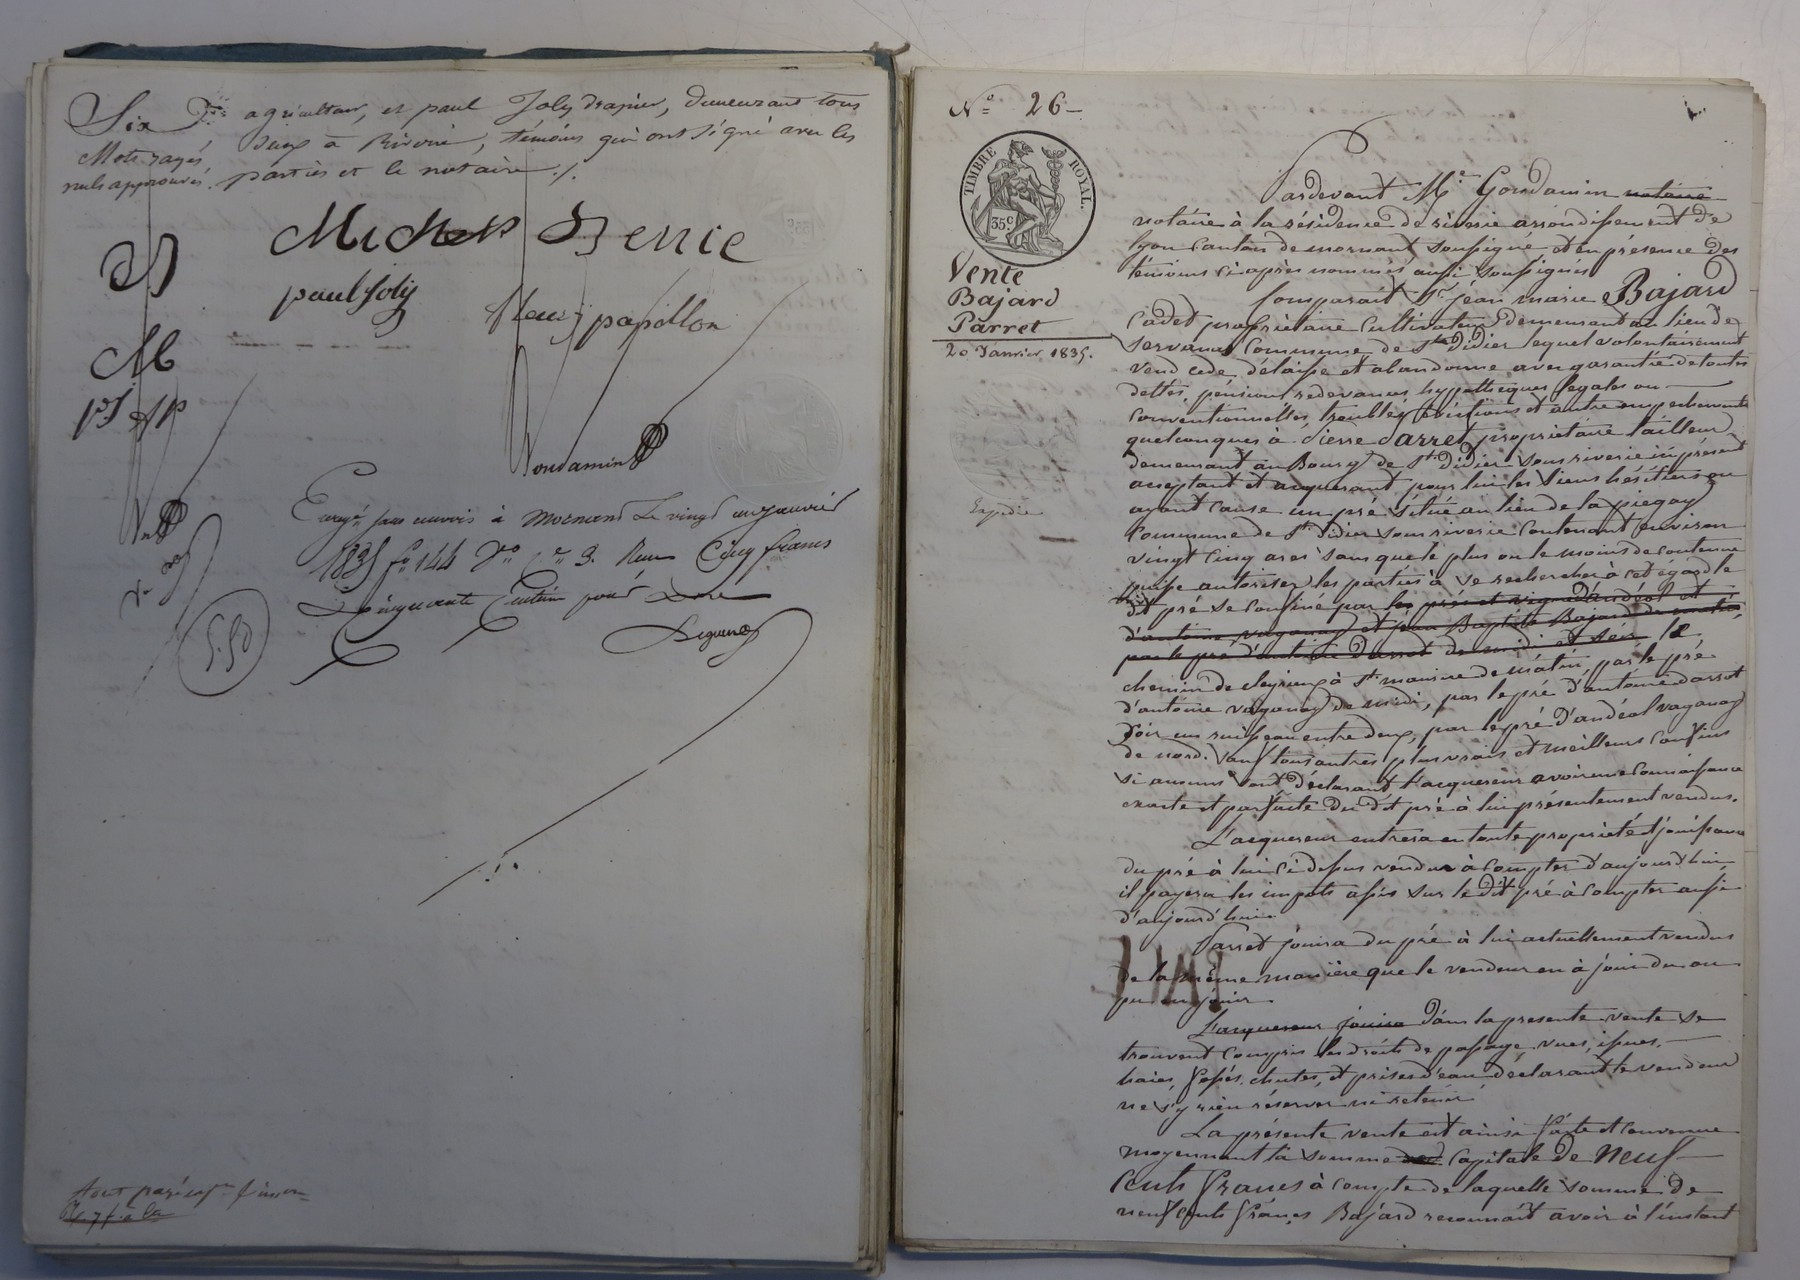 Six
Mots rayés
nuls approuvés.
agriculteur, et paul Joly drapier, demeurant tous
deux à Riverie, témoins qui ont signé avec les
parties et le notaire ./.
Michel
paul Joly
fleury papillon
M
Goudamin
Enregé sans renvois à Mornand Le vingt un janvier
1835 fo 144 Vo Ce 3. Reçu Cinq francs
Cinquante Centimes pour
5.50
No 26
TIMBRE ROYAL.
35c
Vente
Bajard
Parret
20 Janvier 1835.
Expédié
Pardevant Me Goudamin notaire
notaire à la résidence de riverie arrondissement de
lyon canton de mornant soussigné et en présence des
témoins ci après nommés aussi soussignés
Comparait Sr jean marie Bajard
Cadet proprietaire Cultivateur demeurant au lieu de
Commune de St Didier lequel volontairement
vend cede délaisse et abandonne avec garantie de toutes
dettes, pénsions redevances hypothèques legales ou
Conventionnelles, troubles évictions et autre empechements
quelconques à Pierre Parret proprietaire tailleur
demeurant au Bourg de St Didier sous riverie ici présent
acceptant et acquerant pour lui les siens héritiers ou
ayant cause un pré situé au lieu de la piegay
Commune de St Didier sous riverie Contenant environ
vingt Cinq ares sans que le plus ou le moins de contenue
puisse autoriser les parties à se rechercher à cet égard le
dit pré se confine par les prés et vigne d'andéol et
d'antoine vaganay et jean Baptiste Bajard de matin,
par le pré d'antoine Darsot de midi et soir le
chemin de à St maurice de matin, par le pré
d'antoine vaganay de midi, par le pré d'antoine darsot
soir un ruisseau entre deux, par le pré d'andéol vaganay
de nord. sauf tous autres plus vrais et meilleurs confins
si aucuns sont déclarant l'acquereur avoir une connaissance
exacte et parfaite du dit pré à lui présentement vendu.
L'acquereur entrera en toute propriété et jouissance
du pré à lui ci dessus vendu à compter d'aujourd'hui
il payera les impots assis sur le dit pré à compter aussi
d'aujourd'hui.
Parret jouira du pré à lui actuellement vendu
de la même manière que le vendeur en à joui du ou
pu en jouir.
L'acquereur jouira dans la presente vente se
trouvent compris les droits de passage vues, issues,
haies, fossés, chutes, et prises d'eau déclarant le vendeur
ne s'y rien réserver ni retenir
La présente vente est ainsi faite et convenue
moyennant la somme capitale de neuf
Cents francs à compte de laquelle somme de
neuf cents francs Bajard reconnait avoir à l'instant